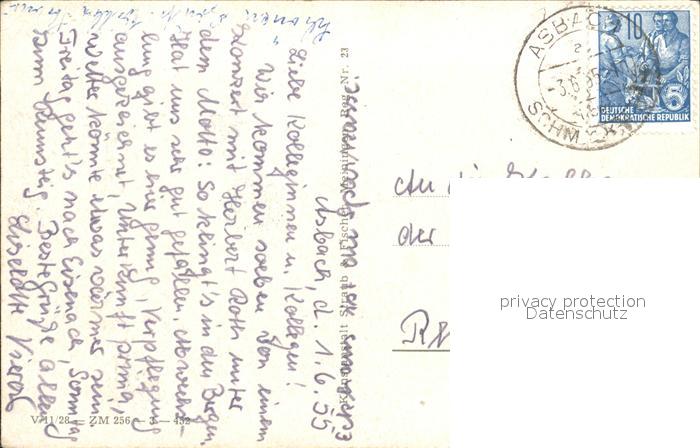 Asbach, d. 1.6.55
Liebe Kolleginnen u. Kollegen!
Wir kommen soeben von einem
Konzert mit Herbert Roth unter
dem Motto: So klingt's in den Bergen.
Hat uns sehr gut gefallen, Abwechs-
lung gibt es hier genug, Verpflegung
ausgezeichnet, Unterkunft prima,
Wetter könnte etwas wärmer sein.
Freitag geht's nach Eisenach, Sonntag
zum Rennsteig. Beste Grüße allen
Liselotte
An die
der
10
DEUTSCHE
DEMOKRATISCHE REPUBLIK
ASBACH
SCHMALK
Kunstanstalt Straub & Fischer, Meiningen Reg. Nr. 23
V/11/28 — ZM 256 — 3 — 452
privacy protection
Datenschutz